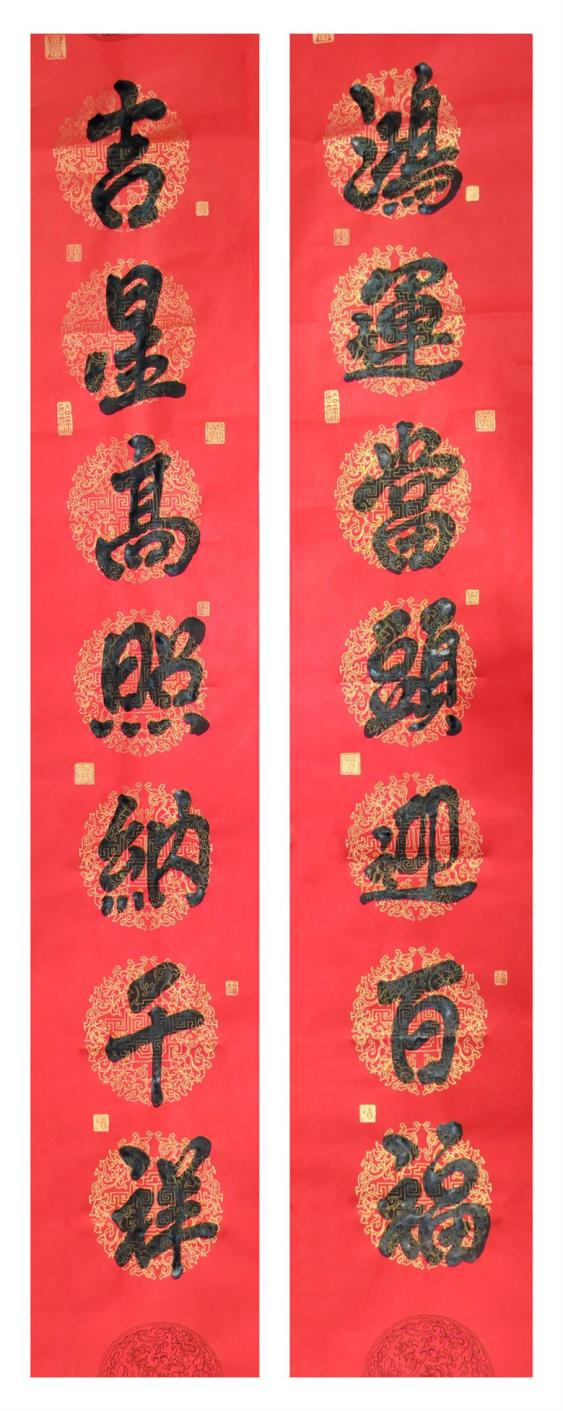 鴻運當頭迎百福
吉星高照納千祥